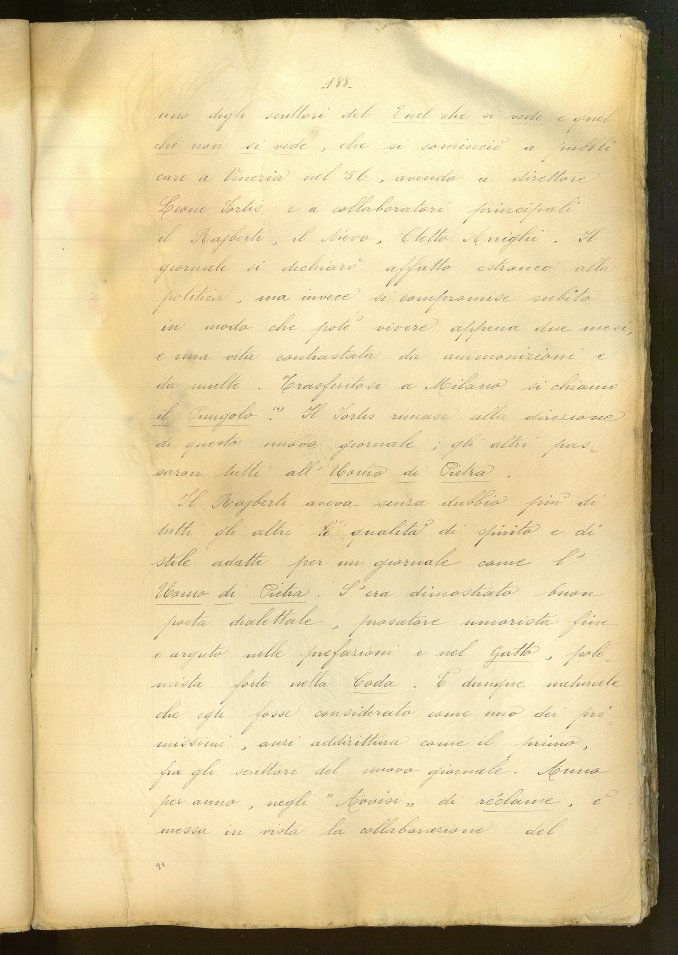 -188-
uno degli scrittori del Quel che si vede e quel
che non si vede, che si cominciò a pubbli
care a Venezia nel '56, avendo a direttore
Leone Fortis e a collaboratori principali
il Rajberti, il Nievo, Cletto Arrighi. Il
giornale si dichiarò affatto estraneo alla
politica, ma invece si compromise subito
in modo che potè vivere appena due mesi,
e una vita contrastata da ammonizioni e
da multe. Trasferitosi a Milano si chiamò
il Pungolo". Il Fortis rimase alla direzione
di questo nuovo giornale; gli altri pas-
saron tutti all'Uomo di Pietra.
Il Rajberti aveva senza dubbio più di
tutti gli altri le qualità di spirito e di
stile adatte per un giornale come l'
Uomo di Pietra. S'era dimostrato buon
poeta dialettale, prosatore umorista fine
e arguto nelle prefazioni e nel Gatto, pole-
mista forte nella Coda. È dunque naturale
che egli fosse considerato come uno dei pri-
missimi, anzi addirittura come il primo,
fra gli scrittori del nuovo giornale. Anno
per anno, negli "Avvisi" di réclame, è
messa in vista la collaborazione del